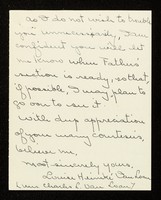 as I do not wish to trouble
you unnecessarily, I am
confident you will let
me know when Father's
section is ready, so that
if possible, I may plan to
go one to see it
with deep appreciation
of your many courtesies,
believe me,
most sincerely yours,
Louise Heinrici Van Loan
(Mrs. Charles E. Van Loan)